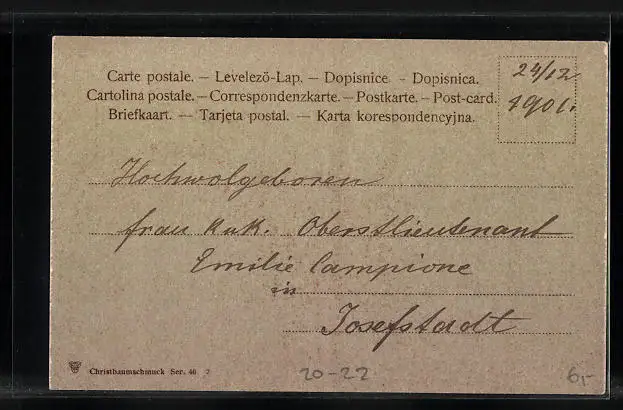 Carte postale. – Levelező-Lap. – Dopisnice – Dopisnica.
Cartolina postale. – Correspondenzkarte. – Postkarte. – Post-card.
Briefkaart. – Tarjeta postal. – Karta korespondencyjna.
24/12
1901.
Hochwolgeboren
frau k u k. Oberstlieutenant
Emilie Campione
in
Josefstadt
Christbaumschmuck Ser. 46 2
20-22
6,-